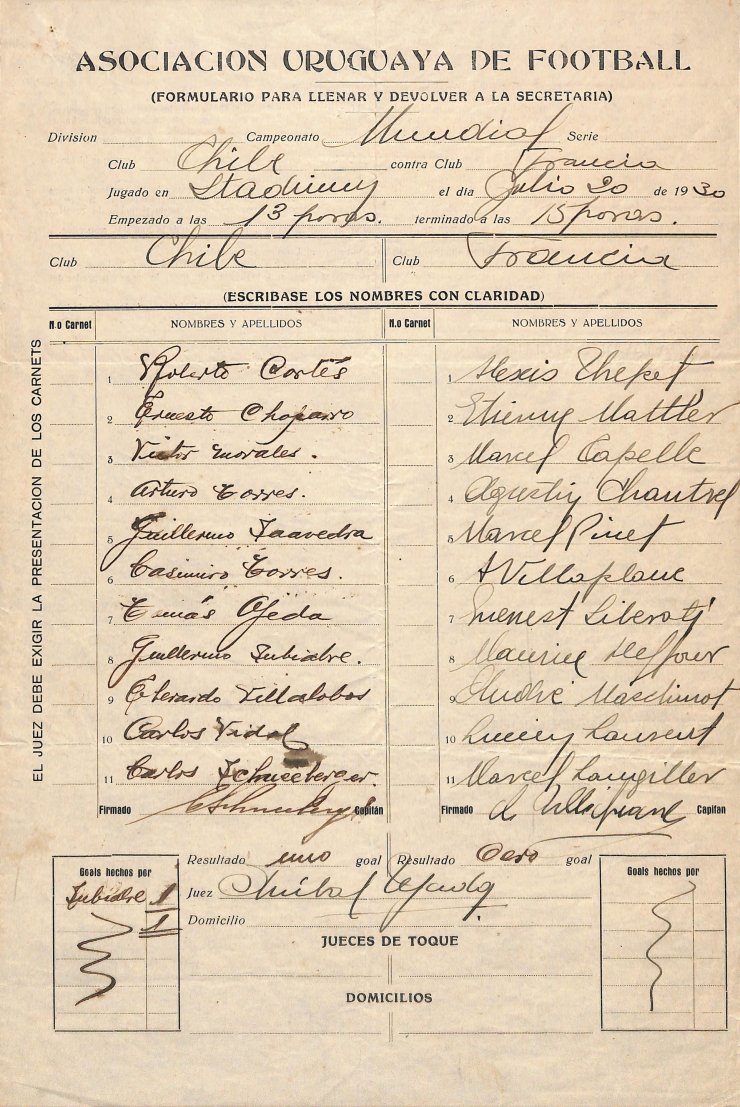 ASOCIACION URUGUAYA DE FOOTBALL
(FORMULARIO PARA LLENAR Y DEVOLVER A LA SECRETARIA)
Division Campeonato Mundial Serie
Club Chile contra Club Francia
Jugado en Stadium el dia Julio 20 de 1930
Empezado a las 13 horas. terminado a las 15 horas.
Club Chile Club Francia
(ESCRIBASE LOS NOMBRES CON CLARIDAD)
N.o Carnet NOMBRES Y APELLIDOS N.o Carnet NOMBRES Y APELLIDOS
EL JUEZ DEBE EXIGIR LA PRESENTACION DE LOS CARNETS
1 Roberto Cortés 1 Alexis Thepet
2 Ernesto Chaparro 2 Etienne Mattler
3 Victor Morales. 3 Marcel Capelle
4 Arturo Torres. 4 Agustin Chantrel
5 Guillermo Saavedra 5 Marcel Pinet
6 Casimiro Torres. 6 A Villaplane
7 Tomás Ojeda 7 Ernest Liberati
8 Guillermo Subiabre. 8 Maurice Delfour
9 Eberardo Villalobos 9 André Maschinot
10 Carlos Vidal 10 Lucien Laurent
11 Carlos Schneeberger. 11 Marcel Langiller
Firmado Capitán Firmado Capitan
Resultado uno goal Resultado Cero goal
Goals hechos por Juez Anibal Tejada Goals hechos por
Subiabre 1
1
Domicilio
JUECES DE TOQUE
DOMICILIOS